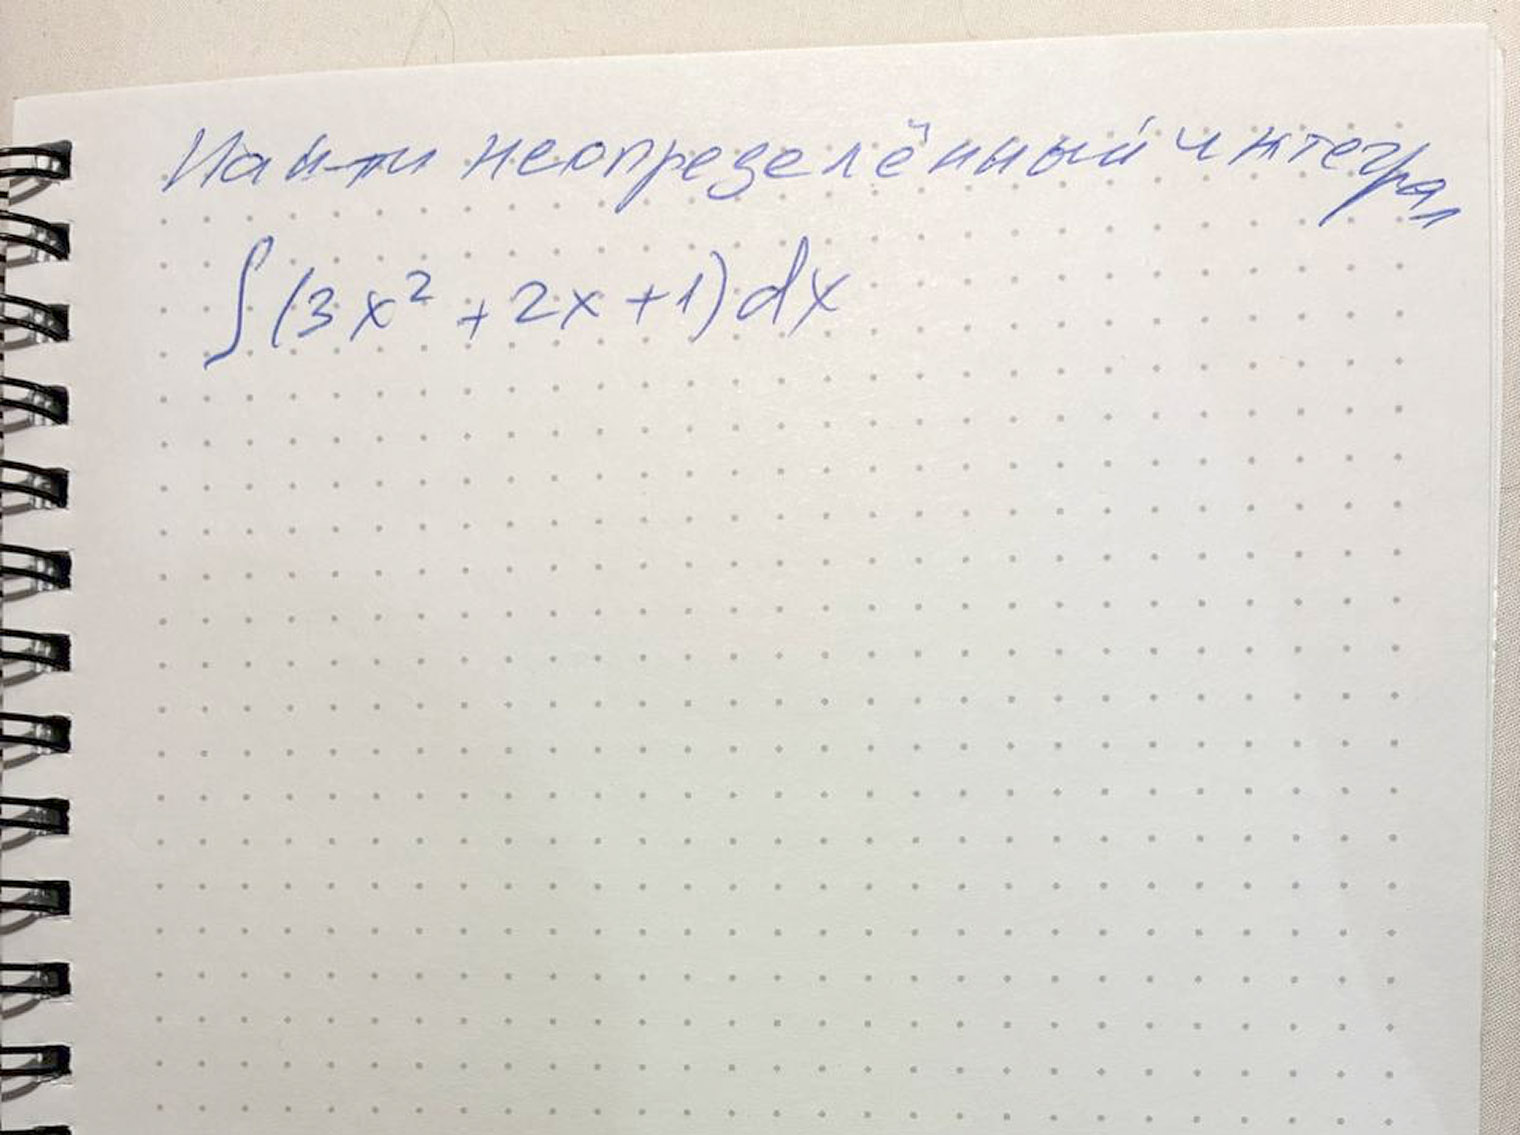 Найти неопределённый интеграл
∫(3x² + 2x + 1)dx